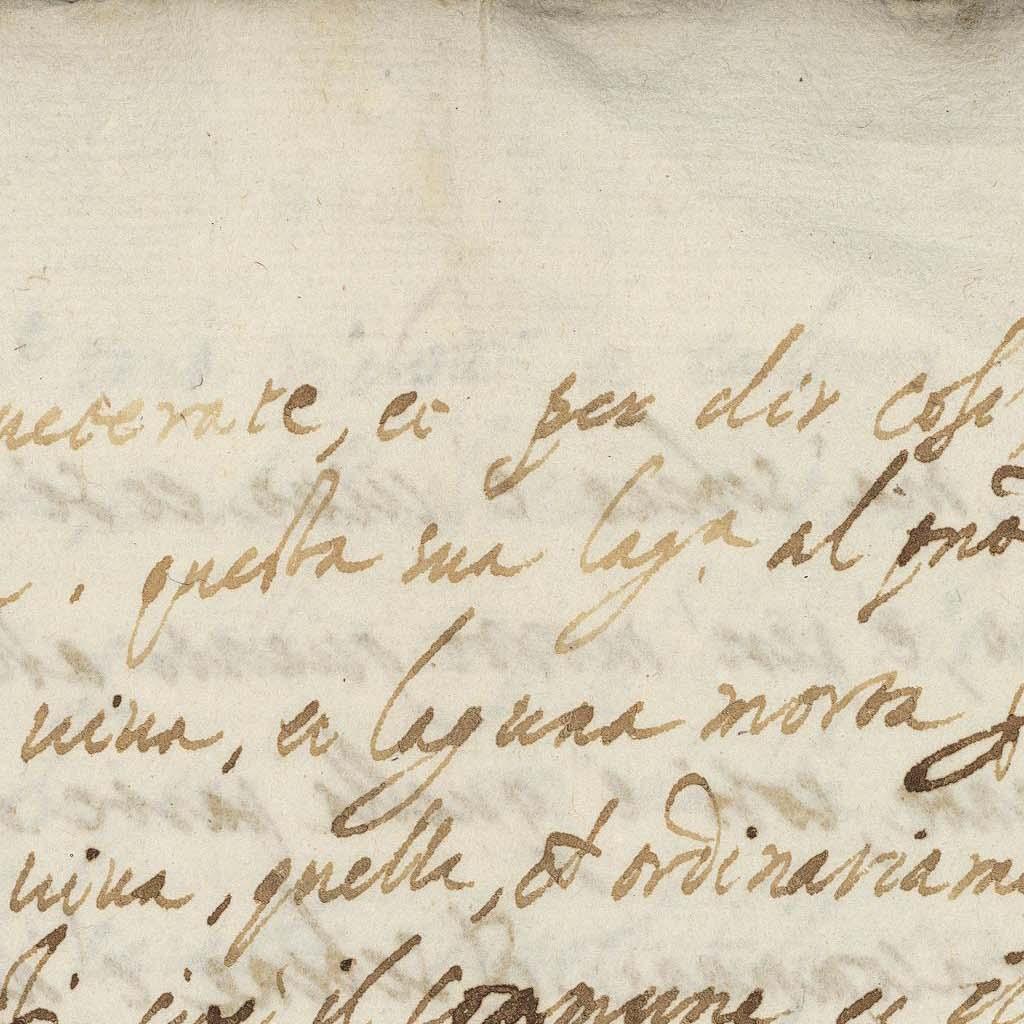 neterate, et per dir cosi
, questa sua laga, al
uiua, et laguna morta
uiua, quella, et ordinariam
il commune et